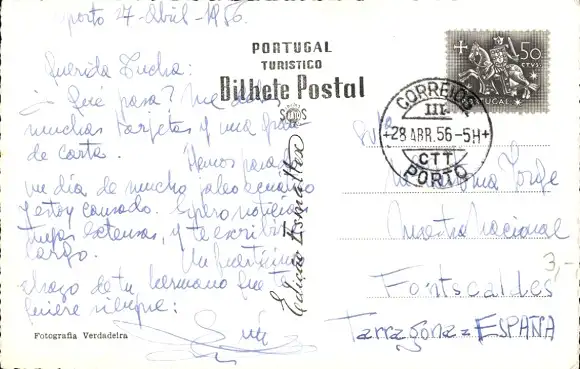 Oporto 27-Abril-1956.
Querida Lucha:
¿Qué pasa? Me debes
muchas tarjetas y una
de carta.
Hemos pasado
un día de mucho
y estoy cansado. Espero noticias
tuyas extensas, y te escribiré
largo.
Un fuertísimo
abrazo de tu hermano que te
quiere siempre:
PORTUGAL
TURISTICO
Bilhete Postal
Edição Esmaltex
Fotografia Verdadeira
50
CTVS.
PORTUGAL
CORREIOS
III
28 ABR. 56-5H
CTT
PORTO
Srta
Jorge
Maestra Nacional
Fontscaldes
3,-
Tarragona = ESPAÑA